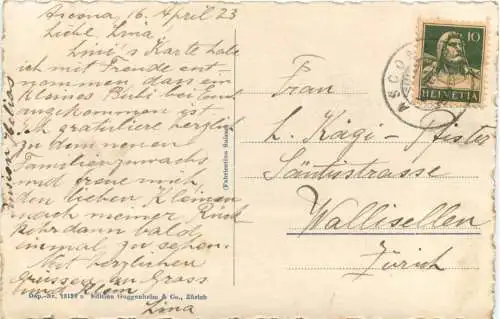 Ascona, 16. April 23
Liebe Lina
Lini's Karte habe
ich mit Freude ent
nommen dass ein
kleines Bubi bei Euch
angekommen ist.
Ich gratuliere herzlich
zu dem neuen
Familienzuwachs
und freue mich
den lieben Kleinen
nach meiner Rück
kehr dann bald
einmal zu sehen.
Mit herzlichen
Grüssen an Gross
und Klein
Lina
Dep.-Nr. 12129 a Edition Guggenheim & Co., Zürich
(Fabrication Suisse)
10
HELVETIA
ASCO
Frau
L. Kägi-Pfister
Säntisstrasse
Wallisellen
Zürich